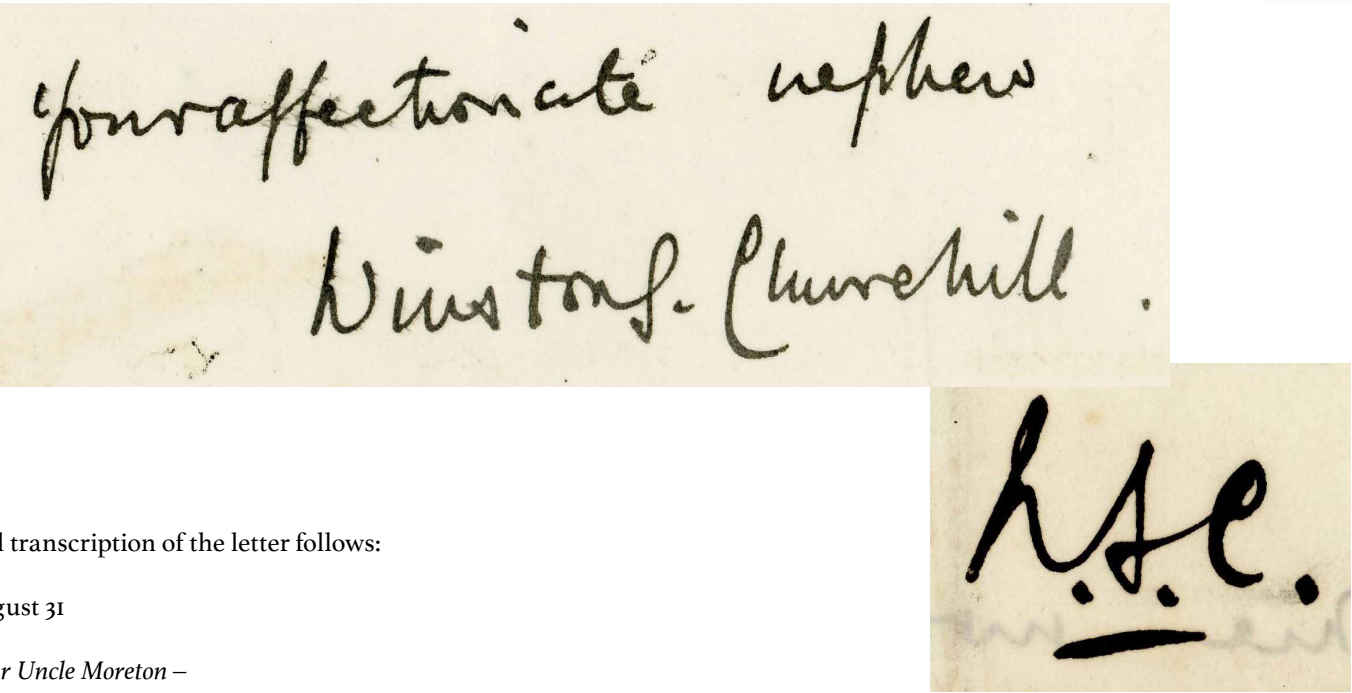 Your affectionate nephew
Winston S. Churchill.
W.S.C.
l transcription of the letter follows:
gust 31
r Uncle Moreton –